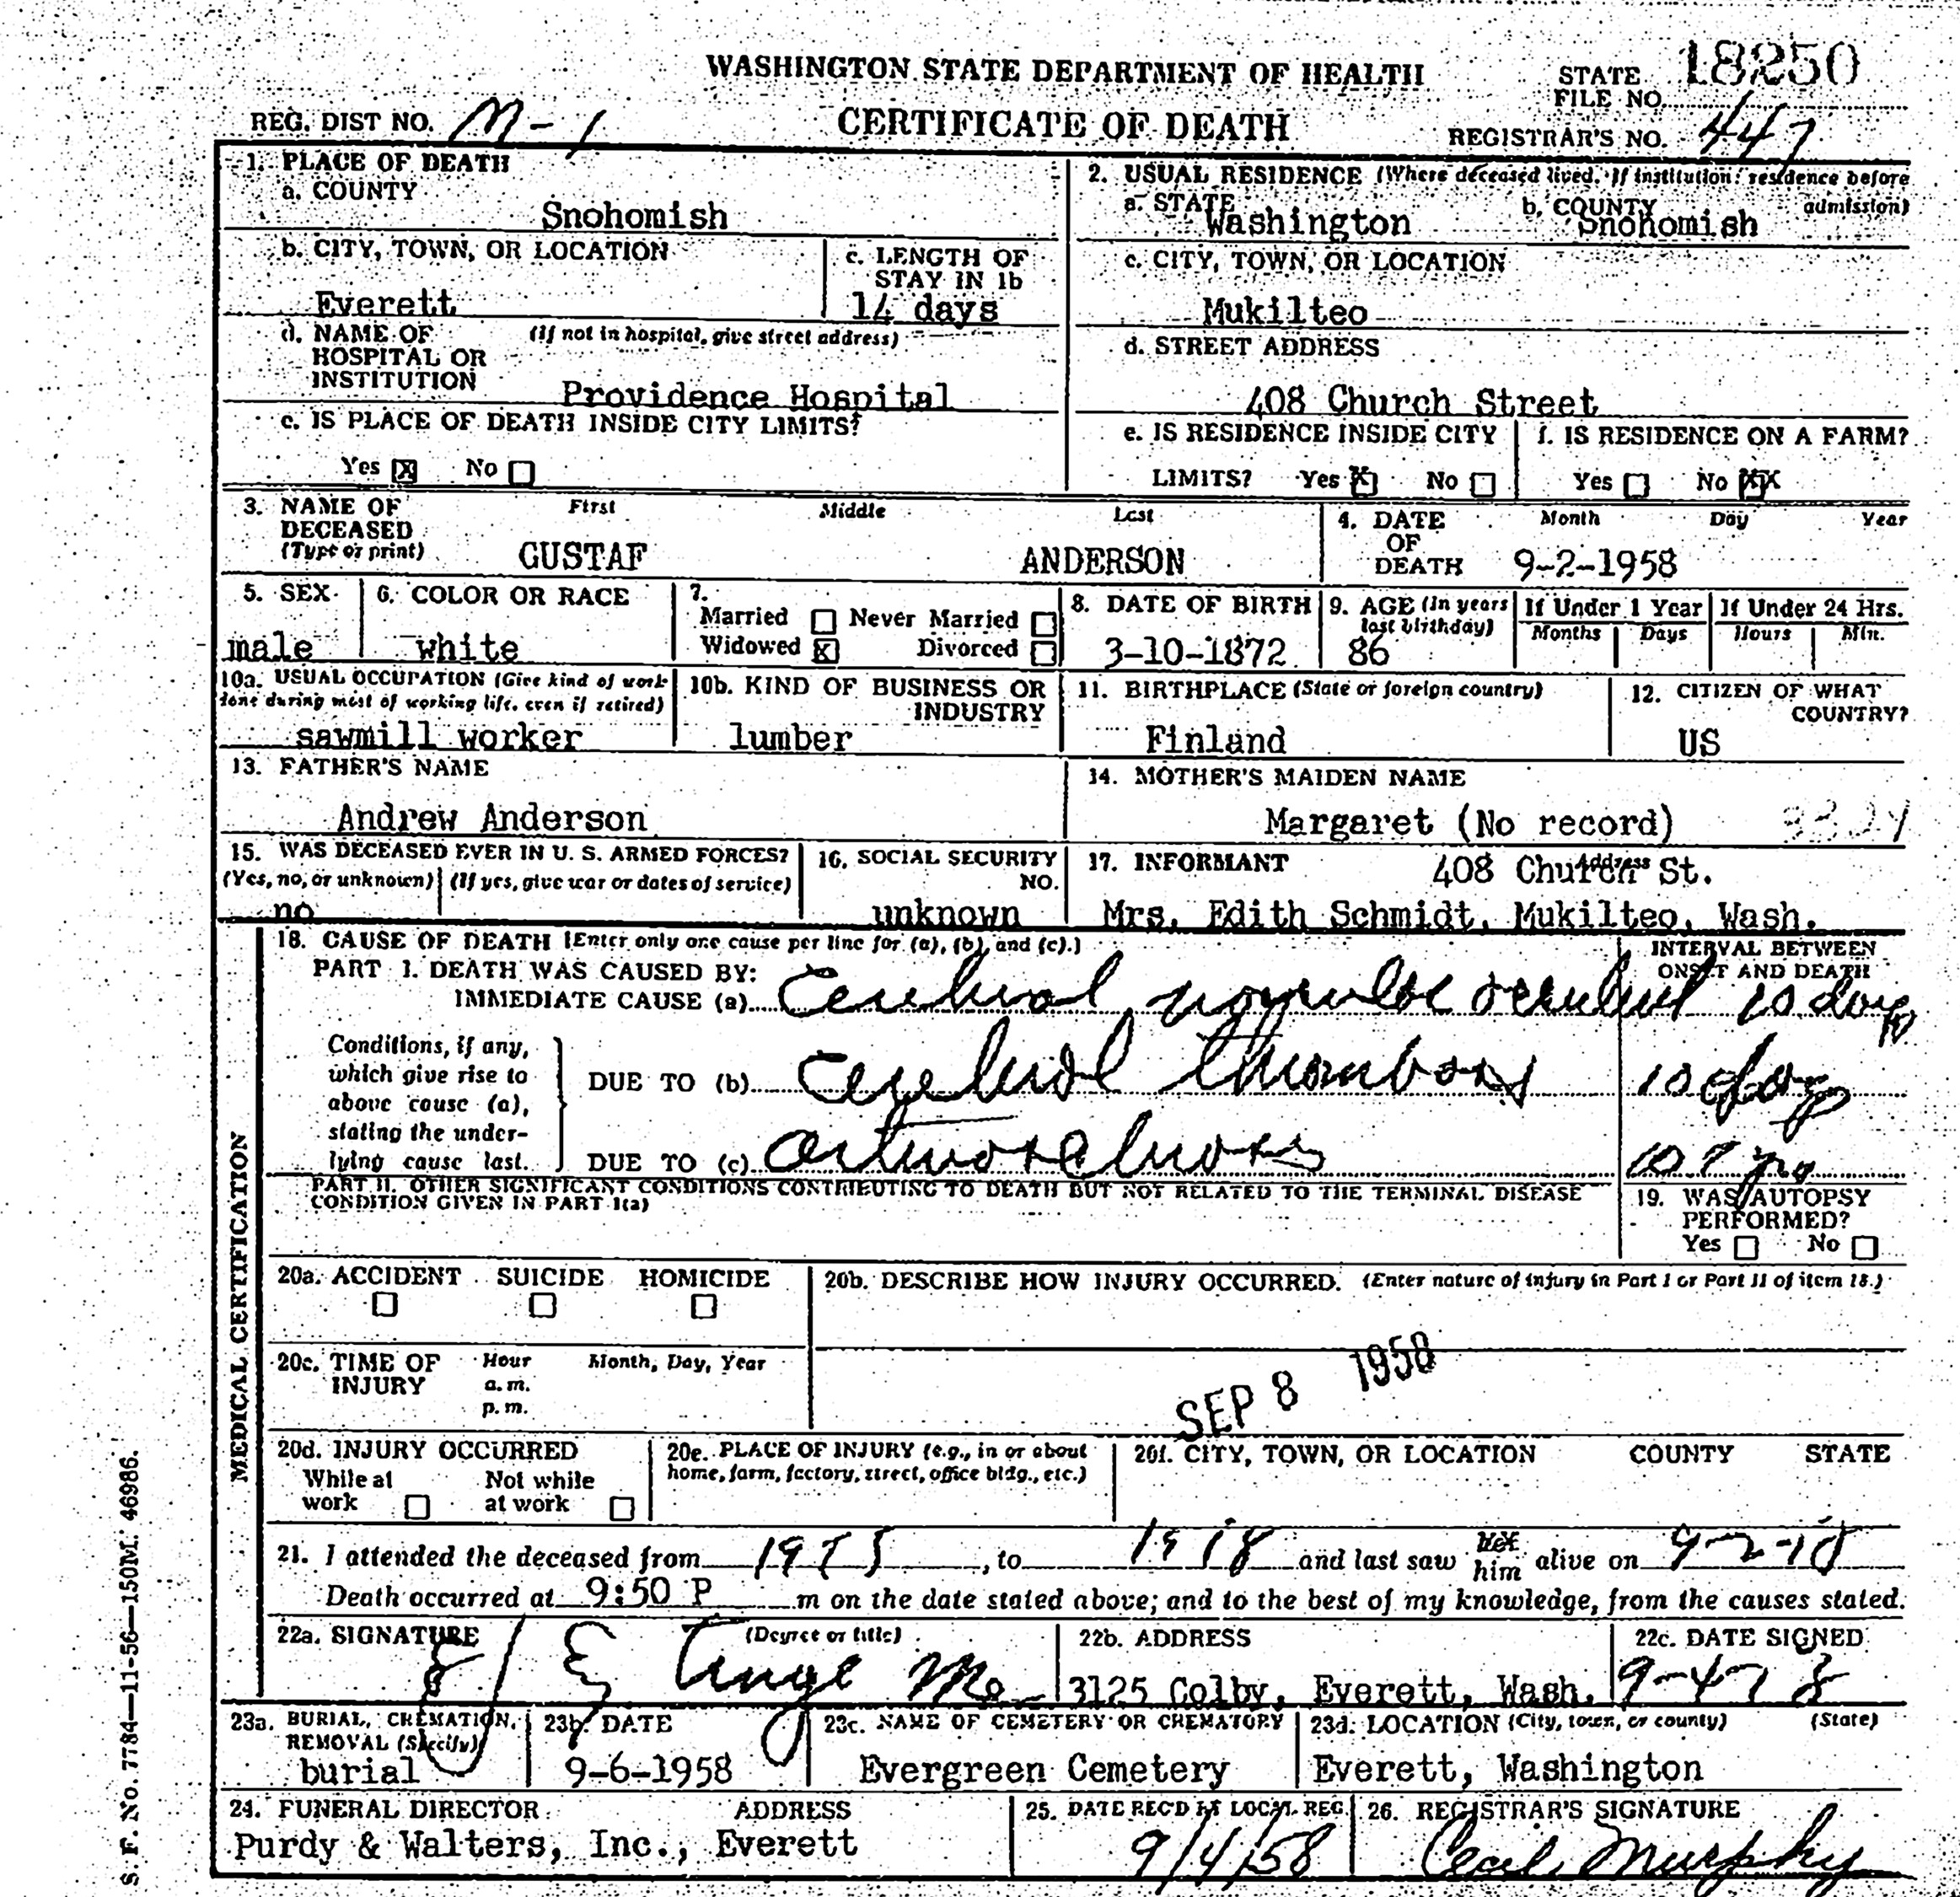 WASHINGTON STATE DEPARTMENT OF HEALTH
STATE FILE NO. 18250
REG. DIST NO. M-1
CERTIFICATE OF DEATH
REGISTRAR'S NO. 447
1. PLACE OF DEATH
a. COUNTY
Snohomish
2. USUAL RESIDENCE (Where deceased lived. If institution: residence before admission)
a. STATE Washington
b. COUNTY Snohomish
b. CITY, TOWN, OR LOCATION
Everett
c. LENGTH OF STAY IN 1b
14 days
c. CITY, TOWN, OR LOCATION
Mukilteo
d. NAME OF HOSPITAL OR INSTITUTION
(If not in hospital, give street address)
Providence Hospital
d. STREET ADDRESS
408 Church Street
e. IS PLACE OF DEATH INSIDE CITY LIMITS?
Yes X No
e. IS RESIDENCE INSIDE CITY LIMITS? Yes X No
f. IS RESIDENCE ON A FARM?
Yes No XX
3. NAME OF DECEASED (Type or print)
First Middle Last
GUSTAF ANDERSON
4. DATE OF DEATH
Month Day Year
9-2-1958
5. SEX
male
6. COLOR OR RACE
white
7.
Married Never Married
Widowed X Divorced
8. DATE OF BIRTH
3-10-1872
9. AGE (In years last birthday)
86
If Under 1 Year
Months Days
If Under 24 Hrs.
Hours Min.
10a. USUAL OCCUPATION (Give kind of work done during most of working life, even if retired)
sawmill worker
10b. KIND OF BUSINESS OR INDUSTRY
lumber
11. BIRTHPLACE (State or foreign country)
Finland
12. CITIZEN OF WHAT COUNTRY?
US
13. FATHER'S NAME
Andrew Anderson
14. MOTHER'S MAIDEN NAME
Margaret (No record)
15. WAS DECEASED EVER IN U. S. ARMED FORCES?
(Yes, no, or unknown) (If yes, give war or dates of service)
no
16. SOCIAL SECURITY NO.
unknown
17. INFORMANT Address
408 Church St.
Mrs. Edith Schmidt, Mukilteo, Wash.
MEDICAL CERTIFICATION
18. CAUSE OF DEATH [Enter only one cause per line for (a), (b), and (c).]
INTERVAL BETWEEN ONSET AND DEATH
PART I. DEATH WAS CAUSED BY:
IMMEDIATE CAUSE (a) Cerebral vascular accident 10 days
Conditions, if any, which give rise to above cause (a), stating the underlying cause last.
DUE TO (b) Cerebral thrombosis 10 days
DUE TO (c) arteriosclerosis 10 ? yrs
PART II. OTHER SIGNIFICANT CONDITIONS CONTRIBUTING TO DEATH BUT NOT RELATED TO THE TERMINAL DISEASE CONDITION GIVEN IN PART I(a)
19. WAS AUTOPSY PERFORMED?
Yes No
20a. ACCIDENT SUICIDE HOMICIDE
20b. DESCRIBE HOW INJURY OCCURRED. (Enter nature of injury in Part I or Part II of item 18.)
20c. TIME OF INJURY
Hour Month, Day, Year
a.m.
p.m.
SEP 8 1958
20d. INJURY OCCURRED
While at work Not while at work
20e. PLACE OF INJURY (e.g., in or about home, farm, factory, street, office bldg., etc.)
20f. CITY, TOWN, OR LOCATION COUNTY STATE
21. I attended the deceased from 1955, to 1958 and last saw her him alive on 9-2-58
Death occurred at 9:50 P m on the date stated above; and to the best of my knowledge, from the causes stated.
22a. SIGNATURE (Degree or title)
22b. ADDRESS
3125 Colby, Everett, Wash.
22c. DATE SIGNED
9-4-58
23a. BURIAL, CREMATION, REMOVAL (Specify)
burial
23b. DATE
9-6-1958
23c. NAME OF CEMETERY OR CREMATORY
Evergreen Cemetery
23d. LOCATION (City, town, or county) (State)
Everett, Washington
24. FUNERAL DIRECTOR ADDRESS
Purdy & Walters, Inc., Everett
25. DATE REC'D BY LOCAL REG.
9/4/58
26. REGISTRAR'S SIGNATURE
Cecil Murphy
S. F. No. 7784—11-56—150M. 46986.